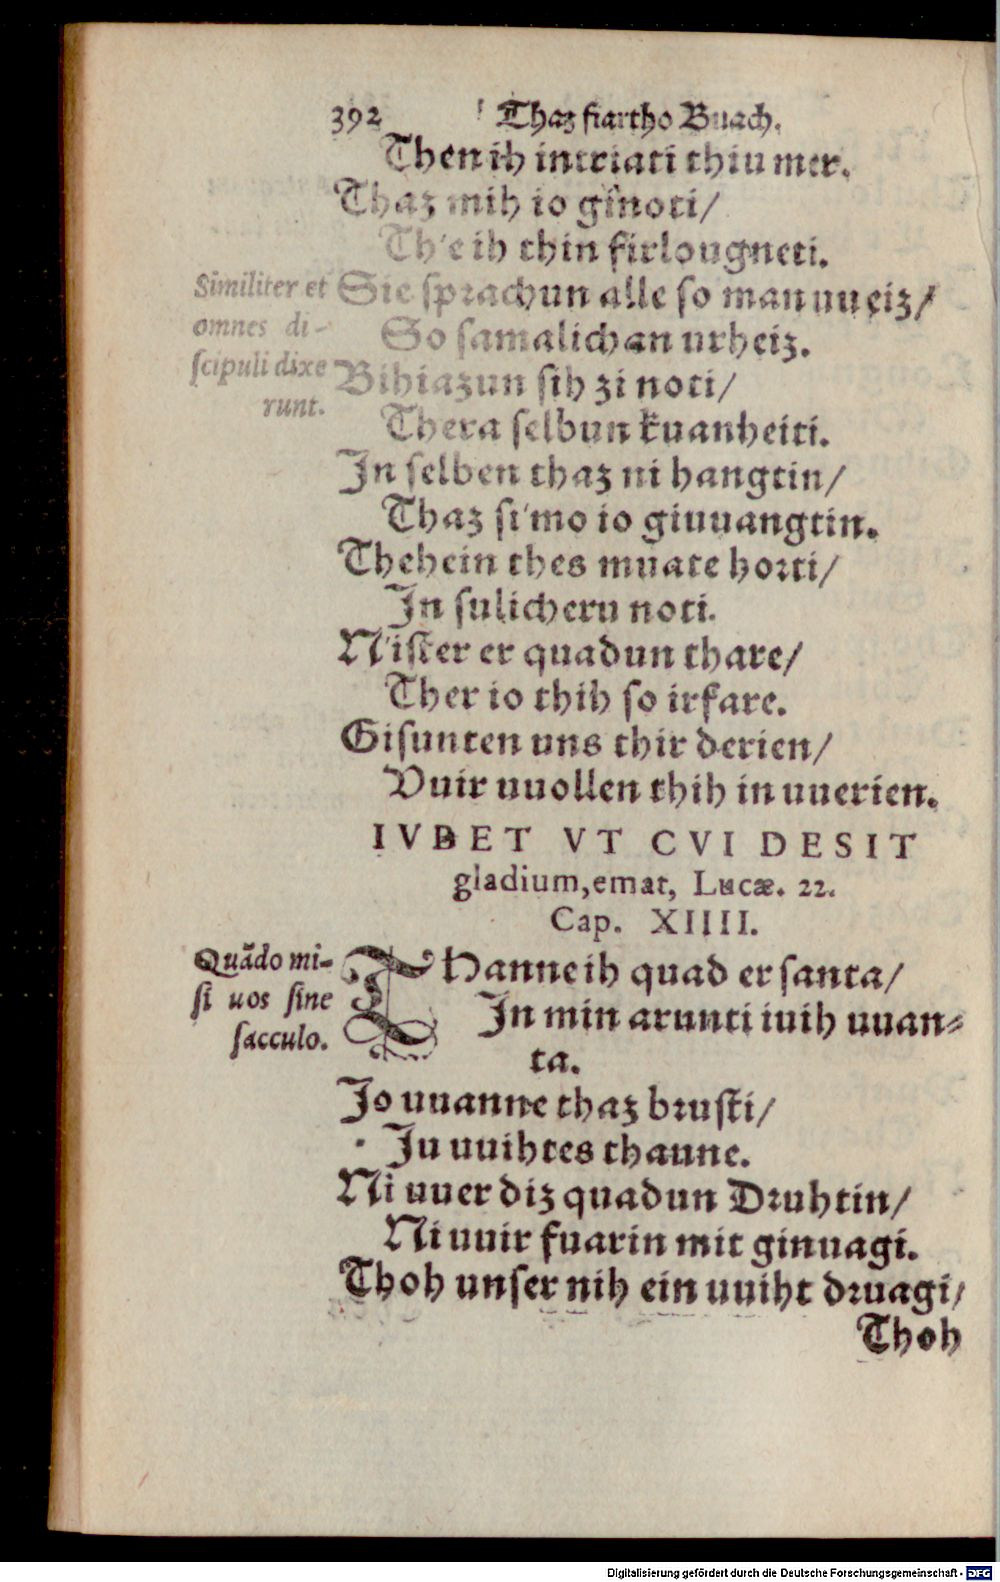 392 Thaz fiartho Buach.
Then ih intriati thiu mer.
Thaz mih io ginoti/
Th'e ih thin firlougneti.
Similiter et
omnes di-
ſcipuli dixe
runt.
Sie ſprachun alle ſo man uueiz/
So ſamalichan urheiz.
Bihiazun ſih zi noti/
Thera ſelbun kuanheiti.
In ſelben thaz ni hangtin/
Thaz ſi'mo io giuuangtin.
Thehein thes muate horti/
In ſulicheru noti.
N'iſter er quadun thare/
Ther io thih ſo irfare.
Giſunten uns thir derien/
Vuir uuollen thih in uuerien.
IVBET VT CVI DESIT
gladium, emat, Lucæ. 22.
Cap. XIIII.
Quãdo mi-
ſi uos ſine
ſacculo.
THanne ih quad er ſanta/
In min arunti iuih uuan-
ta.
Jo uuanne thaz bruſti/
Ju uuihtes thanne.
Ni uuer diz quadun Druhtin/
Ni uuir fuarin mit ginuagi.
Thoh unſer nih ein uuiht druagi/
Thoh
Digitalisierung gefördert durch die Deutsche Forschungsgemeinschaft - DFG